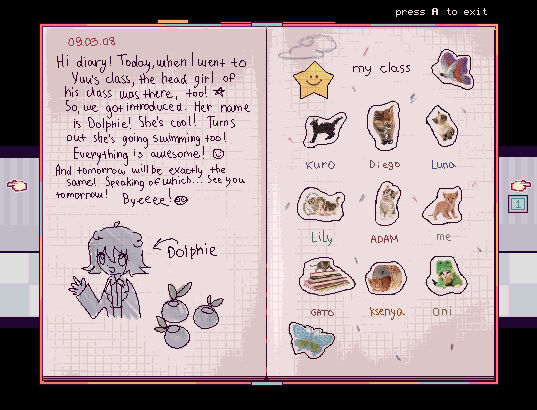 press A to exit
09.03.08
Hi diary! Today, when I went to
Yuu's class, the head girl of
his class was there, too!
So, we got introduced. Her name
is Dolphie! She's cool! Turns
out she's going swimming too!
Everything is awesome!
And tomorrow will be exactly the
same! Speaking of which... See you
tomorrow! Byeeee!
Dolphie
my class
Kuro Diego Luna
Lily ADAM me
GATO Ksenya Oni
1